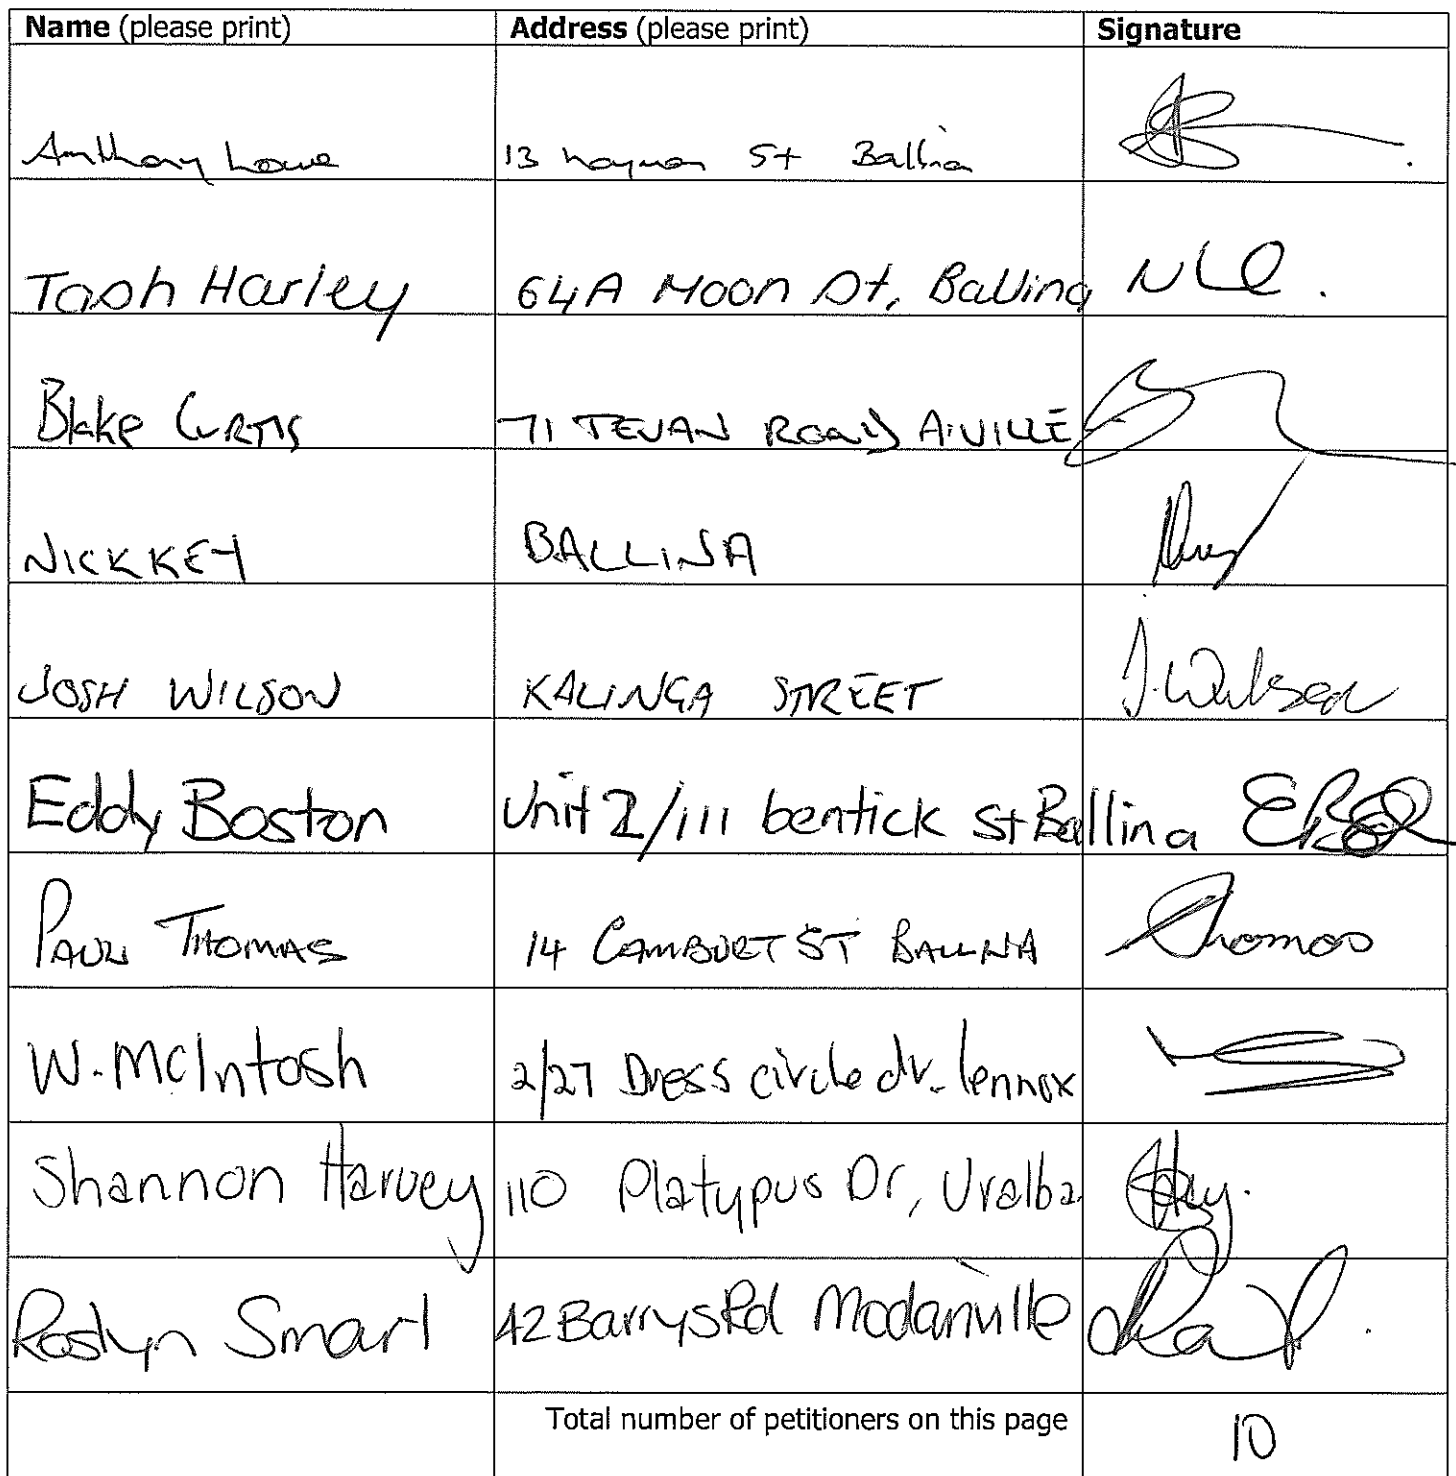 Name (please print) Address (please print) Signature
Anthony Lowe 13 St Ballina
Tash Harley 64A Moon St, Ballina
Blake Curtis 71 TEVAN ROAD A'VILLE
NICK KEY BALLINA
JOSH WILSON KALINGA STREET J. Wilson
Eddy Boston Unit 2/111 bentick St Ballina
PAUL THOMAS 14 ST BALLINA Thomas
W. McIntosh 2/27 Dress circle dr. lennox
Shannon Harvey 110 Platypus Dr, Uralba
Roslyn Smart 42 Barrys Rd Modanville
Total number of petitioners on this page 10